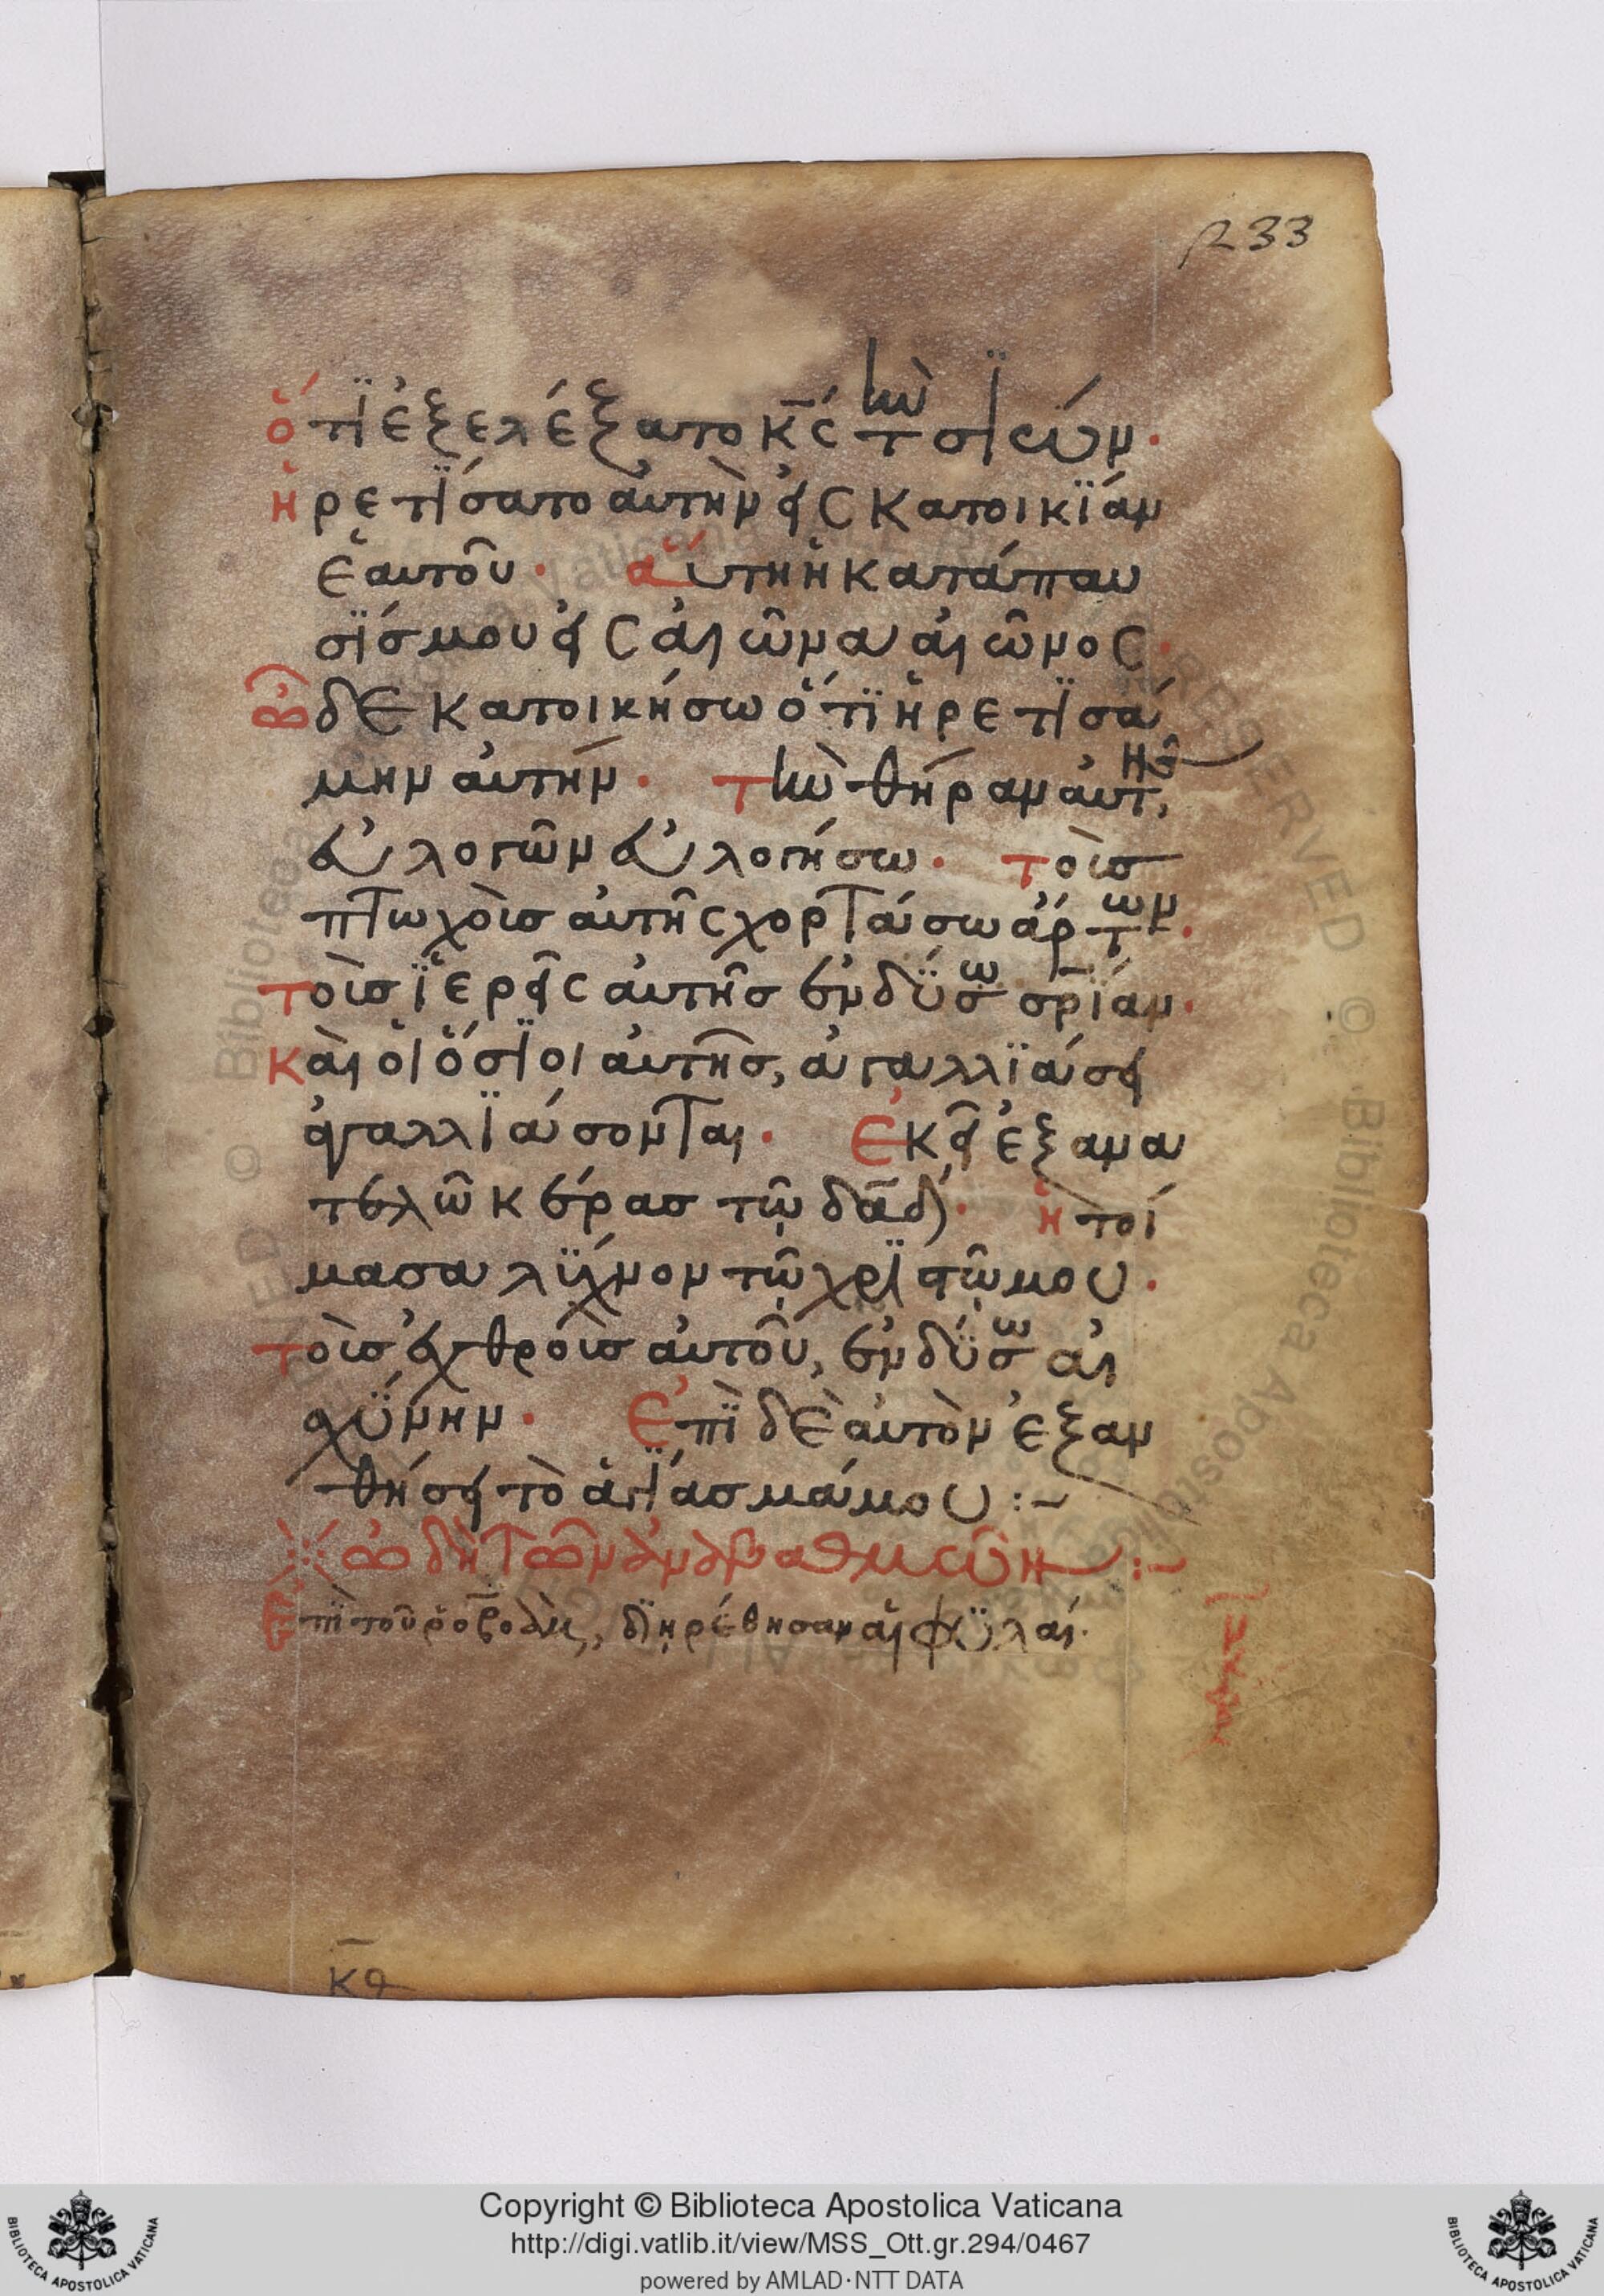 233
ὅτϊ ἐξελέξατο κ̅ς́ τὴν σϊών·
ἡρετϊσατο αὐτὴν εἰς κατοικϊάν
ἑαυτοῦ· αὕτη ἡ κατάπαυ
σϊσ μου εἰς αἰῶνα αἰῶνος·
ὧδε κατοικήσω ὅτϊ ἡρετϊσά
μην αὐτήν· τὴν θήραν αὐτῆς,
εὐλογῶν εὐλογήσω· τοὶσ
πτωχοὶσ αὐτῆς χορτάσω ἄρτων·
τοὺσ ϊερεῖς αὐτῆσ ἐνδύ̈σω σρ̅ϊάν·
καὶ οἱ ὅσϊοι αὐτῆσ, ἀγαλλϊάσει
ἀγαλλϊάσονται· ἐκεῖ ἐξανα
τελῶ κέρασ τῶ δα̅δ· ἡτοί
μασα λύ̈χνον τῶ χρϊστῶ μου·
τοὺσ ἐχθροὺσ αὐτοῦ, ἐνδύ̈σω αἰ
σχύ̈νην· ἐπϊ δὲ αὐτὸν ἐξαν
θήσει τὸ ἁγϊασμά μου :~
ὠδὴ τῶν ἀναβαθμῶν :~
ἐπϊ τοῦ ῥοβοὰμ, δϊηρέθησαν αἱ φϋλαί·
κ̅θ
Copyright © Biblioteca Apostolica Vaticana
http://digi.vatlib.it/view/MSS_Ott.gr.294/0467
powered by AMLAD·NTT DATA
BIBLIOTECA APOSTOLICA VATICANA
BIBLIOTECA APOSTOLICA VATICANA